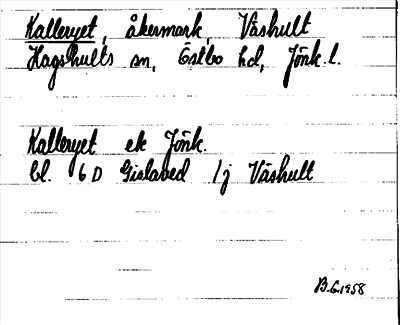 Kalleryet, åkermark, Våshult
Hagshults sn, Östbo hd, Jönk. l.
Kalleryet ek Jönk.
bl. 6 D Gislaved 1j Våshult
B.G. 1958